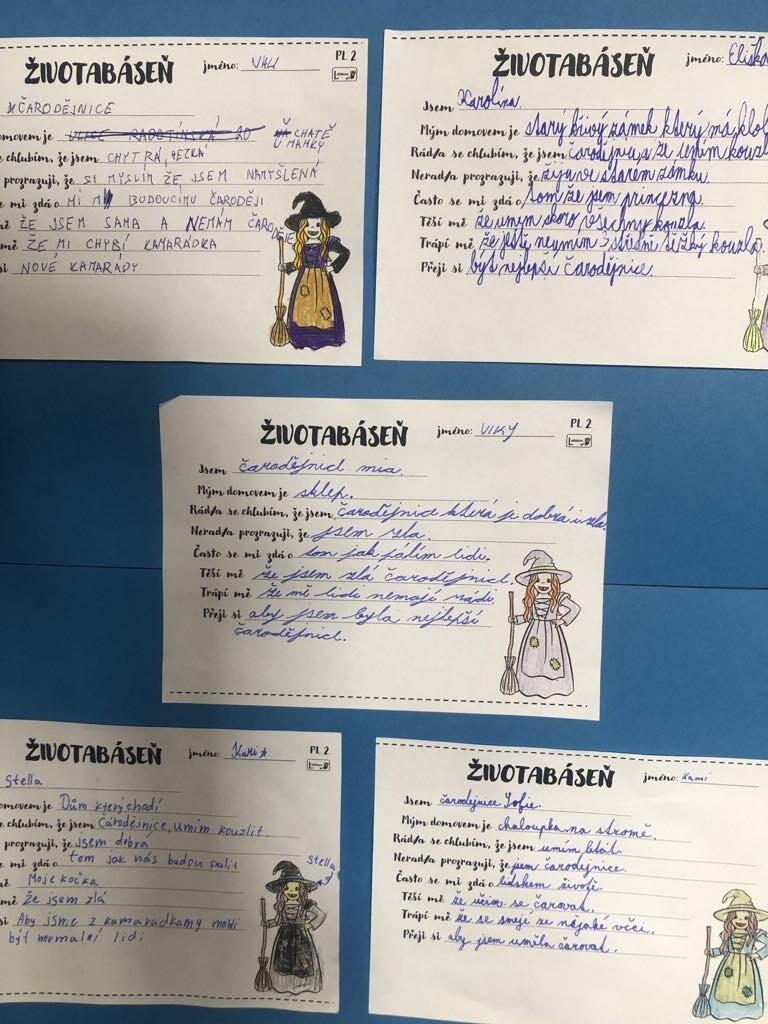 ŽIVOTABÁSEŇ
jméno:
PL 2
ČARODĚJNICE
domovem je ULICE RADOTÍNSKÁ 20 NA CHATĚ
U MAMKY
e chlubím, že jsem CHYTRÁ, HEZKÁ
prozrazuji, že SI MYSLÍM ŽE JSEM NAMYŠLENÁ
e mi zdá o MÍ BUDOUCÍMU ČARODĚJI
mě ŽE JSEM SAMA A NEMÁM ČARODĚJE
mě ŽE MI CHYBÍ KAMARÁDKA
si NOVÉ KAMARÁDY
ŽIVOTABÁSEŇ
jméno: Eliška
Jsem Karolína.
Mým domovem je starý křivý zámek který má
Rád/a se chlubím, že jsem čarodějnys a že umím kouzla
Nerad/a prozrazuji, že žiju ve starém zámku.
Často se mi zdá o tom že jsem princezna.
Těší mě že umym skoro všechny kouzla.
Trápí mě že ještě neymim středně těžký kouzla.
Přeji si být nejlepší čarodějnice.
ŽIVOTABÁSEŇ
jméno: VIKY
PL 2
Jsem čarodějnicl mia.
Mým domovem je sklep.
Rád/a se chlubím, že jsem čarodějnice která je dobrá i zla.
Nerad/a prozrazuji, že jsem zla.
Často se mi zdá o tom jak pálím lidi.
Těší mě že jsem zlá čarodějnicl.
Trápí mě že mě lidi nemají rádi.
Přeji si aby jsem byla nejlepší
čarodějnicl.
ŽIVOTABÁSEŇ
jméno: Kari
PL 2
Stella
domovem je Dům který chodí
e chlubím, že jsem čarodějnice, umim kouzlit.
prozrazuji, že jsem dobrá
e mi zdá o tom jak nás budou palit
mě Moje kočka
mě že jsem zlá
si Aby jsme z kamaradkamy mohli
být normalní lidi
Stella
ŽIVOTABÁSEŇ
jméno: Kami
Jsem čarodejnice Sofie.
Mým domovem je chaloupka na stromě.
Rád/a se chlubím, že jsem umím létat.
Nerad/a prozrazuji, že jsem čarodějnice.
Často se mi zdá o lidskem životě.
Těší mě že učim se čarovat.
Trápí mě že se směji ze nějaké věci.
Přeji si aby jsem uměla čarovat.